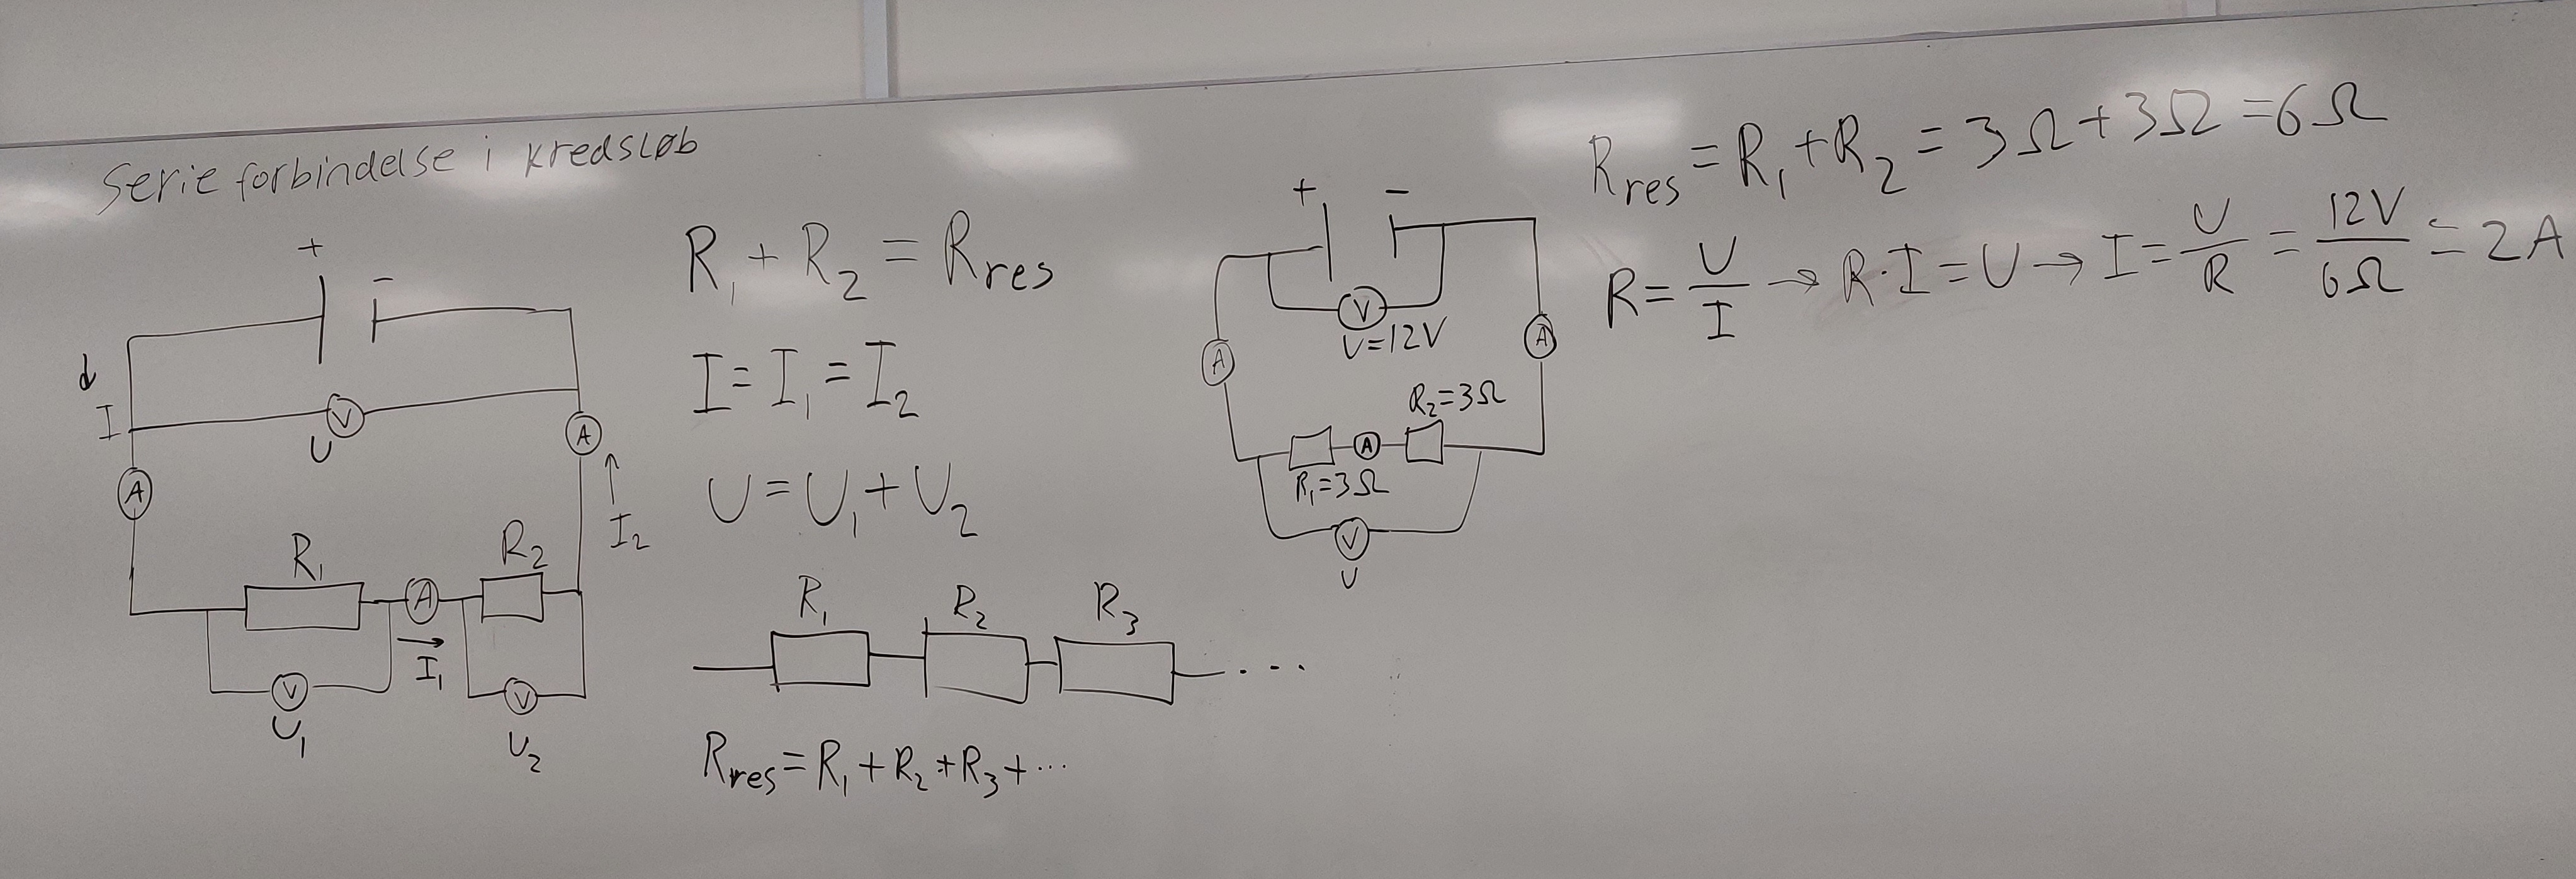 Serie forbindelse i kredsløb
+ -
I
V
U
A
A
I₂
R₁
R₂
A
I₁
V
U₁
V
U₂
R₁ + R₂ = Rres
I = I₁ = I₂
U = U₁ + U₂
R₁ R₂ R₃
...
Rres = R₁ + R₂ + R₃ + ...
+ -
V
U=12V
A
A
R₂=3Ω
A
R₁=3Ω
V
U
Rres = R₁ + R₂ = 3Ω + 3Ω = 6Ω
R = U/I → R·I = U → I = U/R = 12V/6Ω = 2A